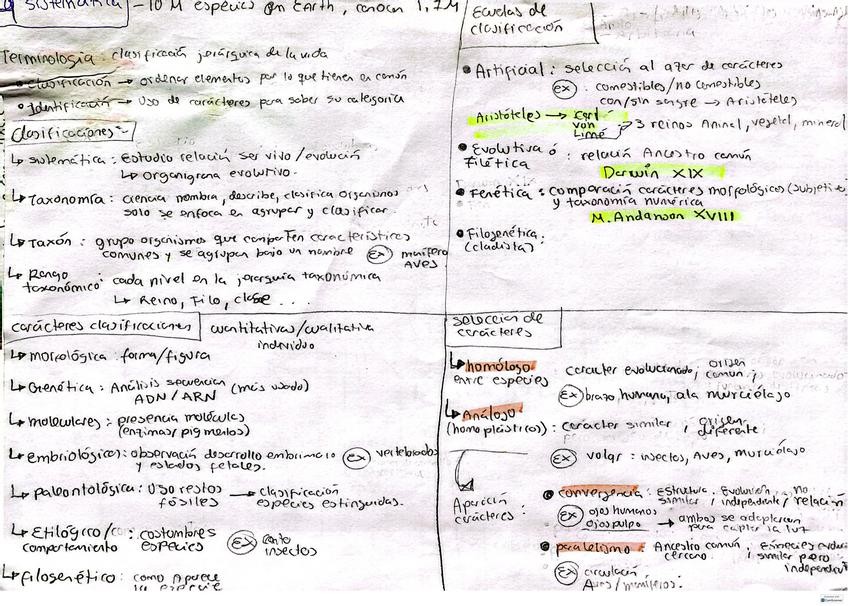 Sistemática - 10 M especies en Earth, conocen 1,7M
Terminología: clasificación jerárquica de la vida
• Clasificación → ordenar elementos por lo que tienen en común
• Identificación → Uso de carácteres para saber su categoría
Clasificaciones
↳ Sistemática: Estudio relación ser vivo/evolución
↳ Organigrama evolutivo.
↳ Taxonomía: ciencia nombra, describe, clasifica organismos
solo se enfoca en agrupar y clasificar.
↳ Taxón: grupo organismos que comparten características
comunes y se agrupan bajo un nombre (EX) mamífero
AVES
↳ Rango
taxonómico: cada nivel en la jerarquía taxonómica
↳ Reino, Filo, clase...
Escuelas de
clasificación
• Artificial: selección al azar de carácteres
(ex): comestibles/no comestibles
con/sin sangre → Aristóteles
Aristóteles → Carl
von
Linné → 3 reinos Animal, vegetal, mineral
• Evolutiva ó
Filética: relación Ancestro común
Darwin XIX
• Fenética: comparación carácteres morfológicos (subjetivo)
y taxonomía numérica
M. Andanson XVIII
• Filogenética:
(cladista)
carácteres clasificaciones cuantitativas/cualitativa
individuo
↳ morfológica: forma/figura
↳ Genética: Análisis secuencia (más usado)
ADN/ARN
↳ moleculares: presencia moléculas
(enzimas/pigmentos)
↳ Embriológicos: observación desarrollo embrionario (EX) vertebrados
y estados fetales.
↳ paleontológica: Uso restos → clasificación
fósiles especies estinguidas.
↳ Etilógico/
comportamiento: costumbres
especies (EX) canto
insectos
↳ filogenético: como Aparece
la especie
selección de
carácteres
↳ homólogo
entre especies: caracter evolucionado, origen
común;
(EX) brazo, humano, ala murciélago
↳ Análogo
(homoplásticos): carácter similar, origen
diferente
(EX) volar: insectos, Aves, murciélago
Aparición
carácteres:
• convergencia: Estructura similar, Evolución independiente, no relación
(EX) ojos humanos
ojos pulpo → ambos se adaptaron
para captar la luz
• paralelismo: Ancestro común cercano, Especies
similar pero
(EX) circulación
Aves/mamíferos.